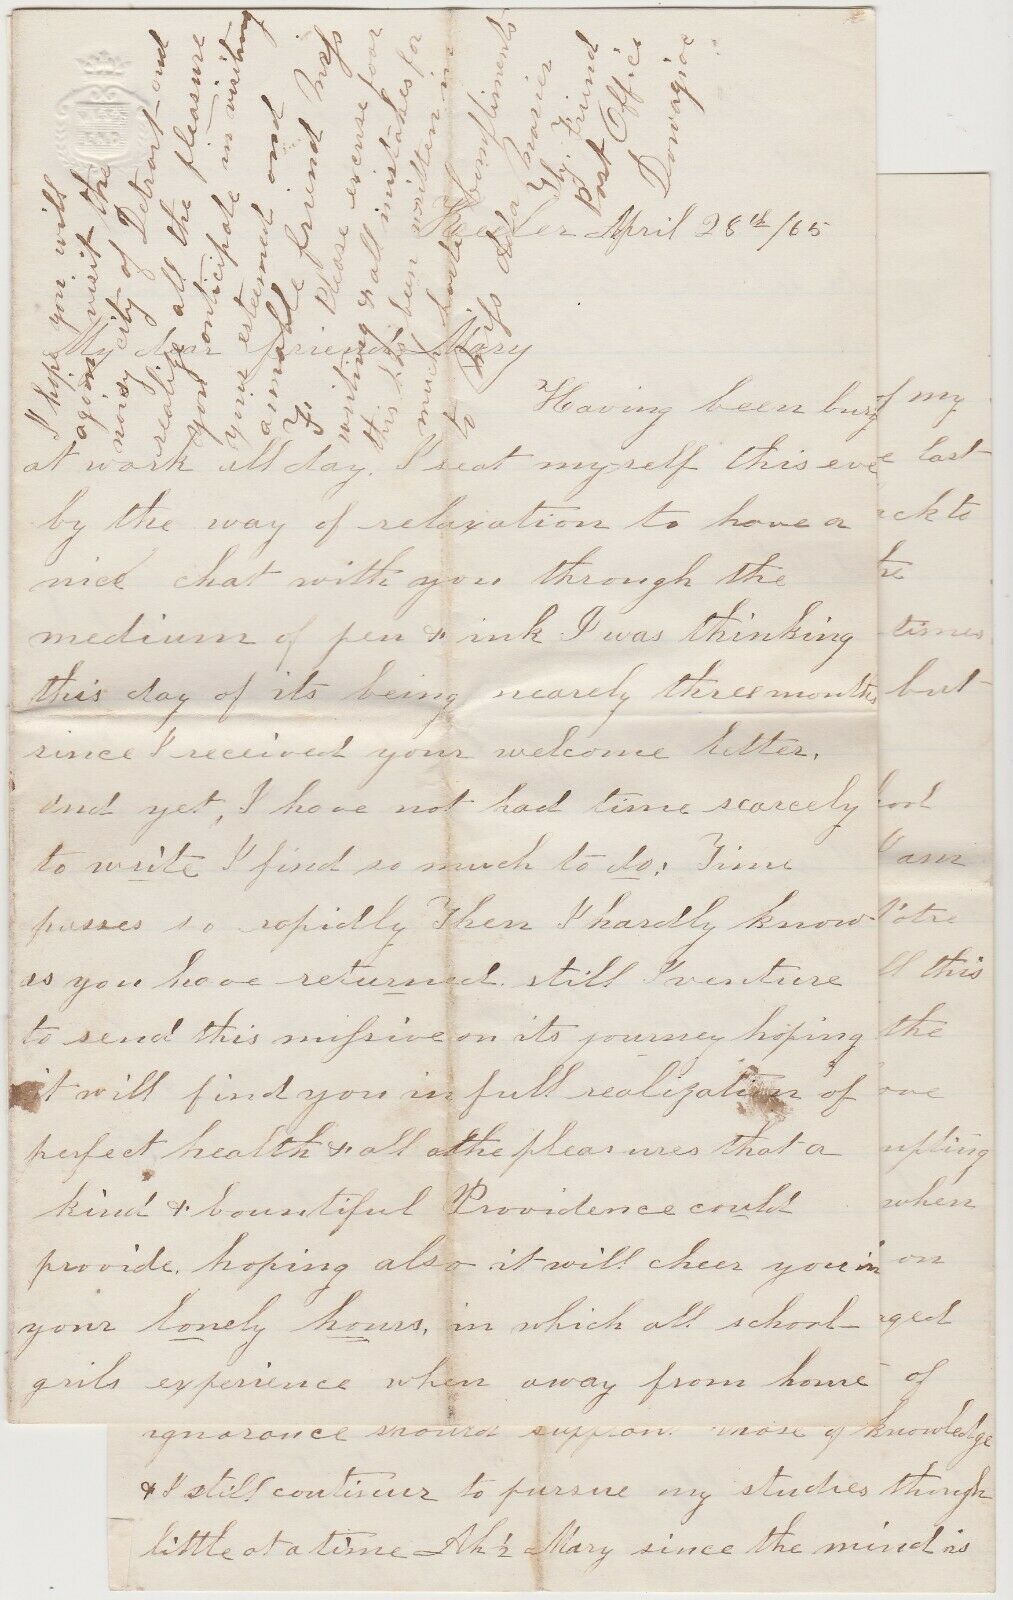 Keeler April 28th/65
My dear friend Mary
Having been busy
at work all day, I seat myself this eve
by the way of relaxation to have a
nice chat with you through the
medium of pen & ink I was thinking
this day of its being nearely three months
since I received your welcome letter,
and yet, I have not had time scarcely
to write I find so much to do; Time
passes so rapidly Then I hardly know
as you have returned. still I venture
to send this missive on its journey hoping
it will find you in full realization of
perfect health & all the pleasures that a
kind & bountiful Providence could
provide. hoping also it will cheer you in
your lonely hours, in which all school
grils experience when away from home
I hope you will
again visit the
noisy city of Detroit and
realize all the pleasure
you anticipate in visiting
your esteemed and
amiable friend Miss
F. Please excuse poor
writing & all mistakes for
this has been written in
much haste
to Miss Ada Marier
Compliments
Thy Friend
Post Office
Dowagiac
of my
last
ack to
times
but
hool
I am
Notre
ll this
the
ove
upting
when
on
aged
of
ignorance should support those of knowledge
& I still continur to pursue my studies though
little at a time Ah! Mary since the mind is